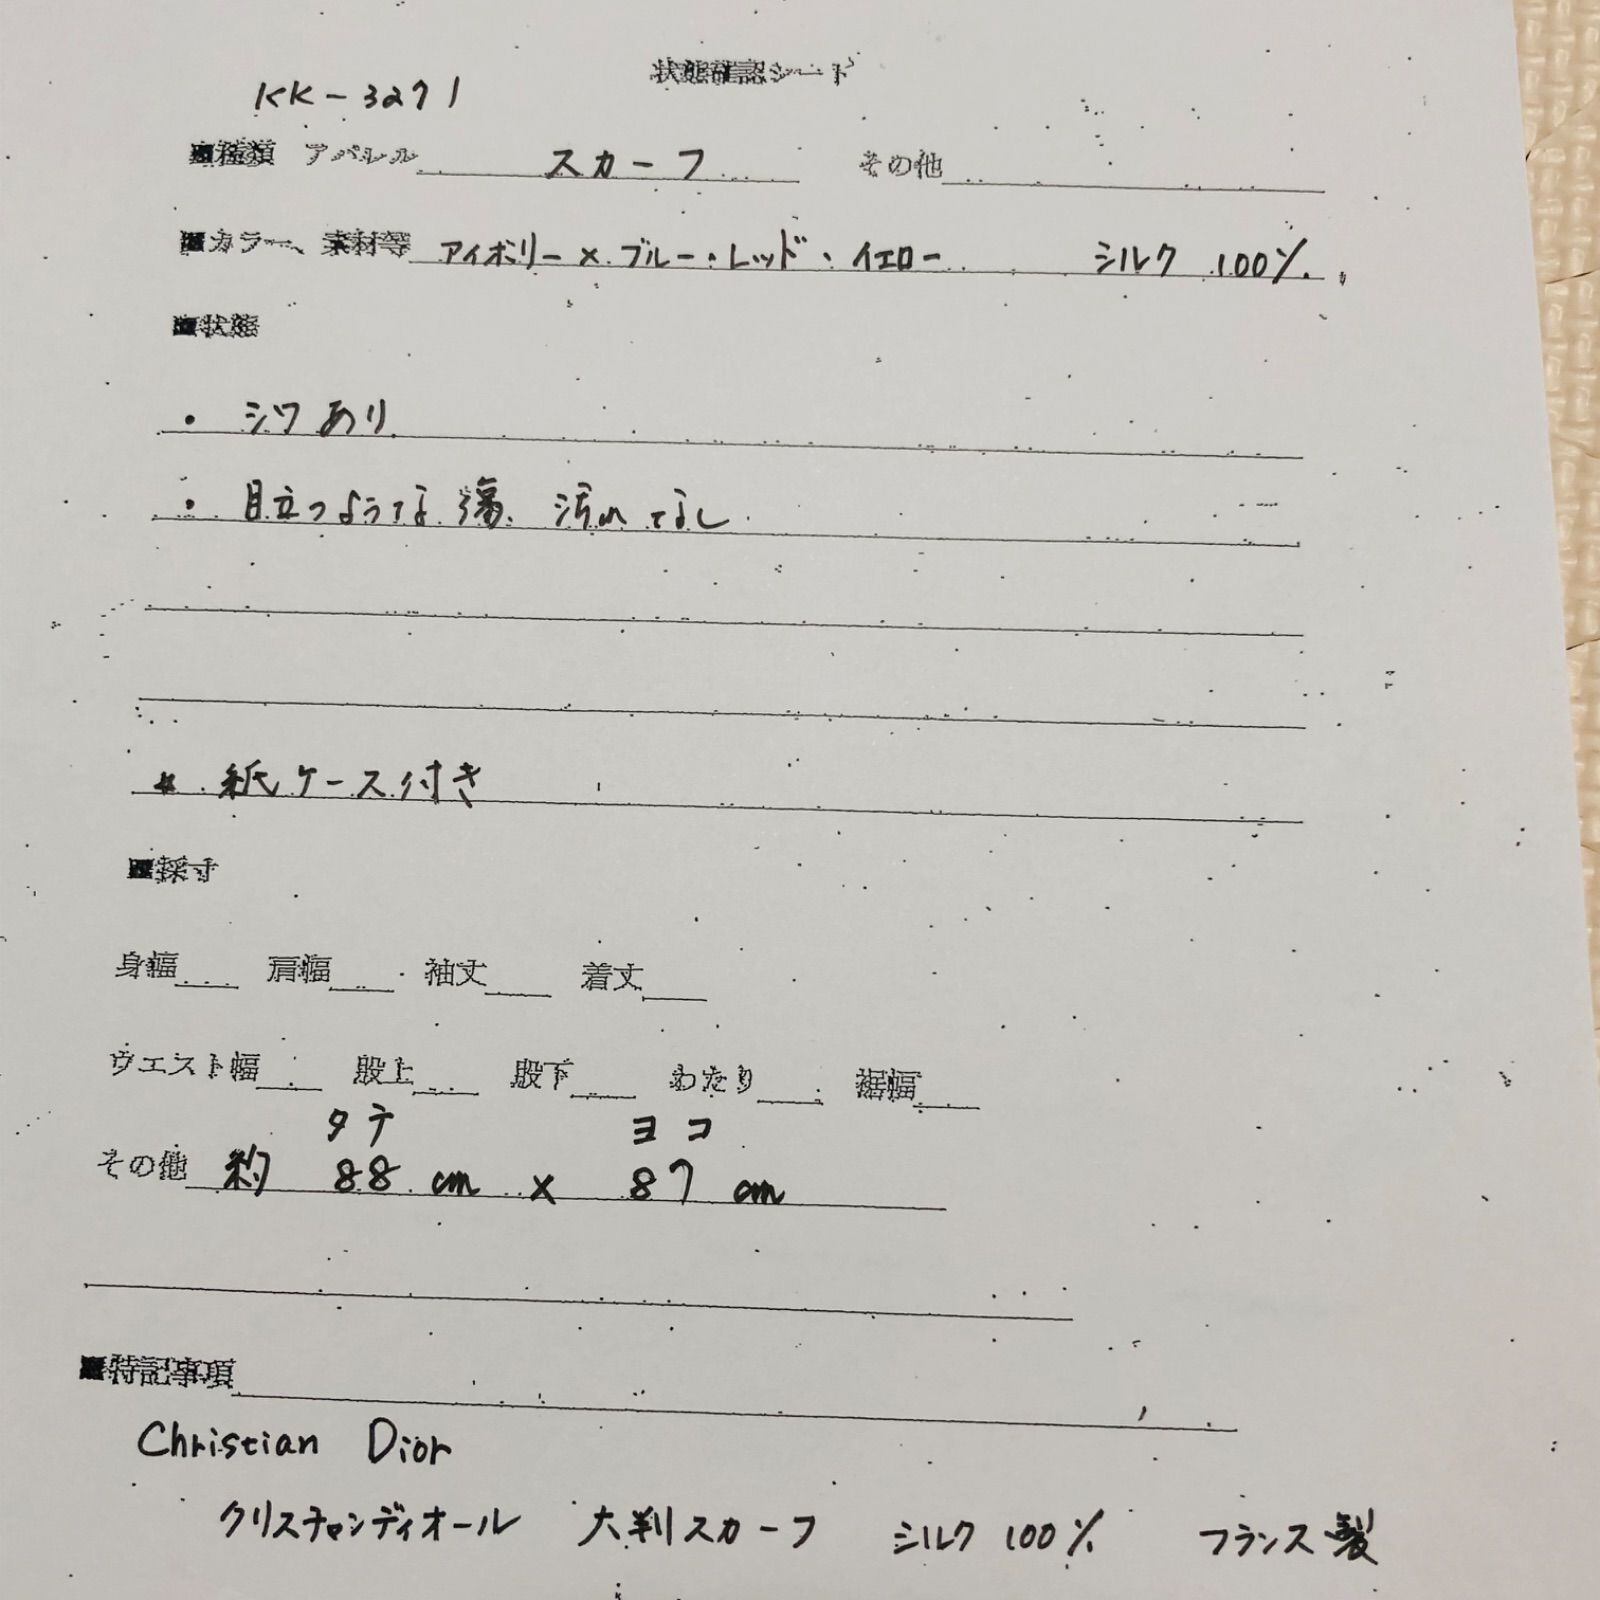 状態確認シート
KK-3271
■種類 アパレル スカーフ その他
■カラー、素材等 アイボリー×ブルー・レッド・イエロー シルク 100%
■状態
・シワあり
・目立つような傷、汚れなし
* 紙ケース付き
■採寸
身幅 肩幅 袖丈 着丈
ウエスト幅 股上 股下 わたり 裾幅
タテ ヨコ
その他 約 88 cm × 87 cm
■特記事項
Christian Dior
クリスチャンディオール 大判スカーフ シルク 100% フランス製